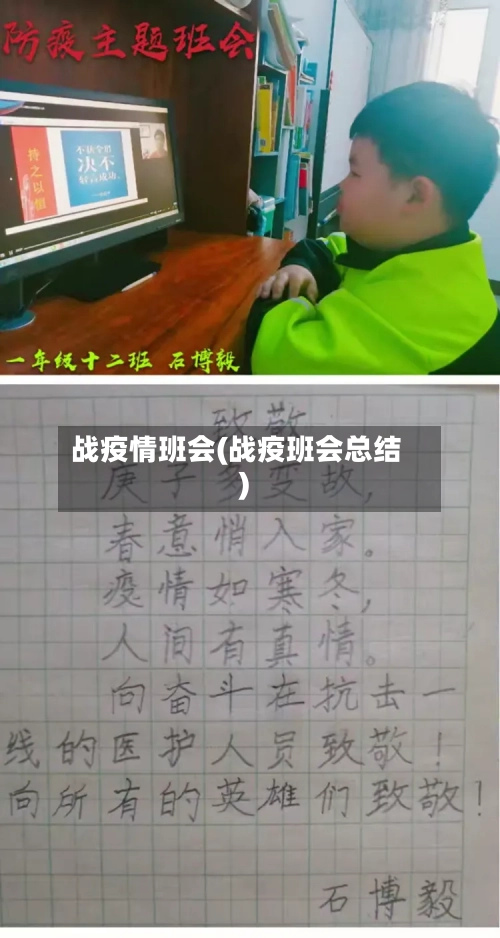 防疫主题班会
持之以恒
决不
一年级十二班 石博毅
致敬
战疫情班会(战疫班会总结
)
庚子多变故，
春意悄入家。
疫情如寒冬，
人间有真情。
向奋斗在抗击一
线的医护人员致敬！
向所有的英雄们致敬！
石博毅